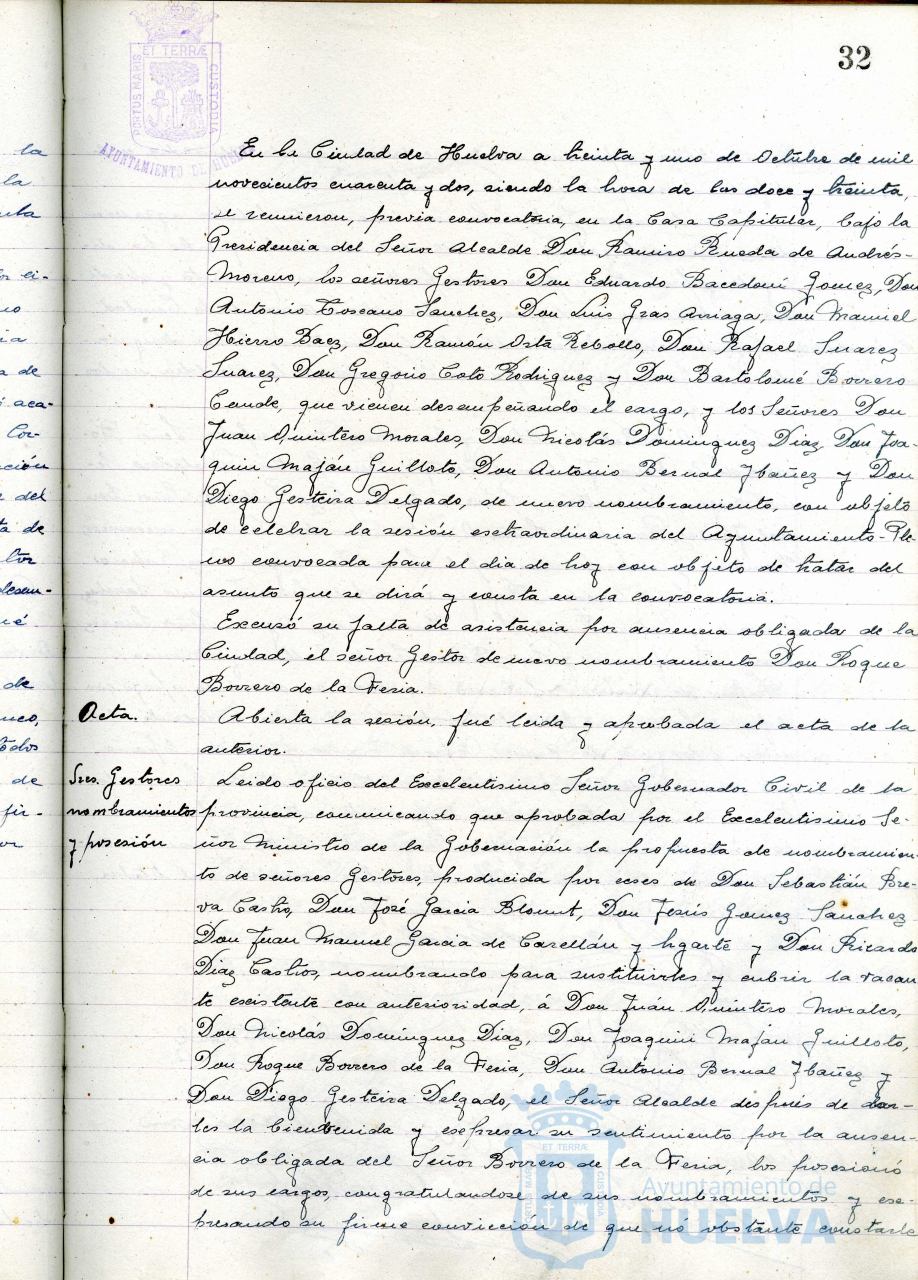 32
ET TERRÆ
PORTUS MARIS
CUSTODIA
AYUNTAMIENTO DE
En la Ciudad de Huelva a treinta y uno de Octubre de mil
novecientos cuarenta y dos, siendo la hora de las doce y treinta,
se reunieron, previa convocatoria, en la Casa Capitular, bajo la
Presidencia del Señor Alcalde Don Ramiro Rueda de Andrés-
Moreno, los señores Gestores Don Eduardo Bacedoni Gomez, Don
Antonio Toscano Sanchez, Don Luis Gras Arriaga, Don Manuel
Hierro Baez, Don Ramón Orta Rebollo, Don Rafael Suarez
Suarez, Don Gregorio Coto Rodriguez y Don Bartolomé Borrero
Conde, que vienen desempeñando el cargo, y los Señores Don
Juan Quintero Morales, Don Nicolás Dominguez Diaz, Don Joa
quin Maján Guilloto, Don Antonio Bernal Ybañez y Don
Diego Gesteira Delgado, de nuevo nombramiento, con objeto
de celebrar la sesión esctraordinaria del Ayuntamiento-Ple
no convocada para el dia de hoy con objeto de tratar del
asunto que se dirá y consta en la convocatoria.
Excusó su falta de asistencia por ausencia obligada de la
Ciudad, el señor Gestor de nuevo nombramiento Don Roque
Borrero de la Feria.
Acta.
Abierta la sesión, fué leida y aprobada el acta de la
anterior.
Sres. Gestores
nombramientos
y posesión
Leido oficio del Excelentisimo Señor Gobernador Civil de la
provincia, comunicando que aprobada por el Excelentisimo Se-
ñor Ministro de la Gobernación la propuesta de nombramien-
to de señores Gestores, producida por ceses de Don Sebastián Bre-
va Castro, Don José Garcia Blount, Don Jesús Gomez Sanchez
Don Juan Manuel Garcia de Carellán y Ugarte y Don Ricardo
Diaz Castro, nombrando para sustituirles y cubrir la vacan
te escistente con anterioridad, á Don Juán Quintero Morales,
Don Nicolás Dominguez Diaz, Don Joaquin Maján Guilloto,
Don Roque Borrero de la Feria, Don Antonio Bernal Ybañez y
Don Diego Gesteira Delgado, el Señor Alcalde después de dar-
les la bienvenida y escpresar su sentimiento por la ausen-
cia obligada del Señor Borrero de la Feria, los posesionó
de sus cargos, congratulandose de sus nombramientos y esc-
presando su firme convicción de que nó obstante constarle
Ayuntamiento de
HUELVA
la
la
de
ó aca-
Cor-
del
de
desem-
de
de